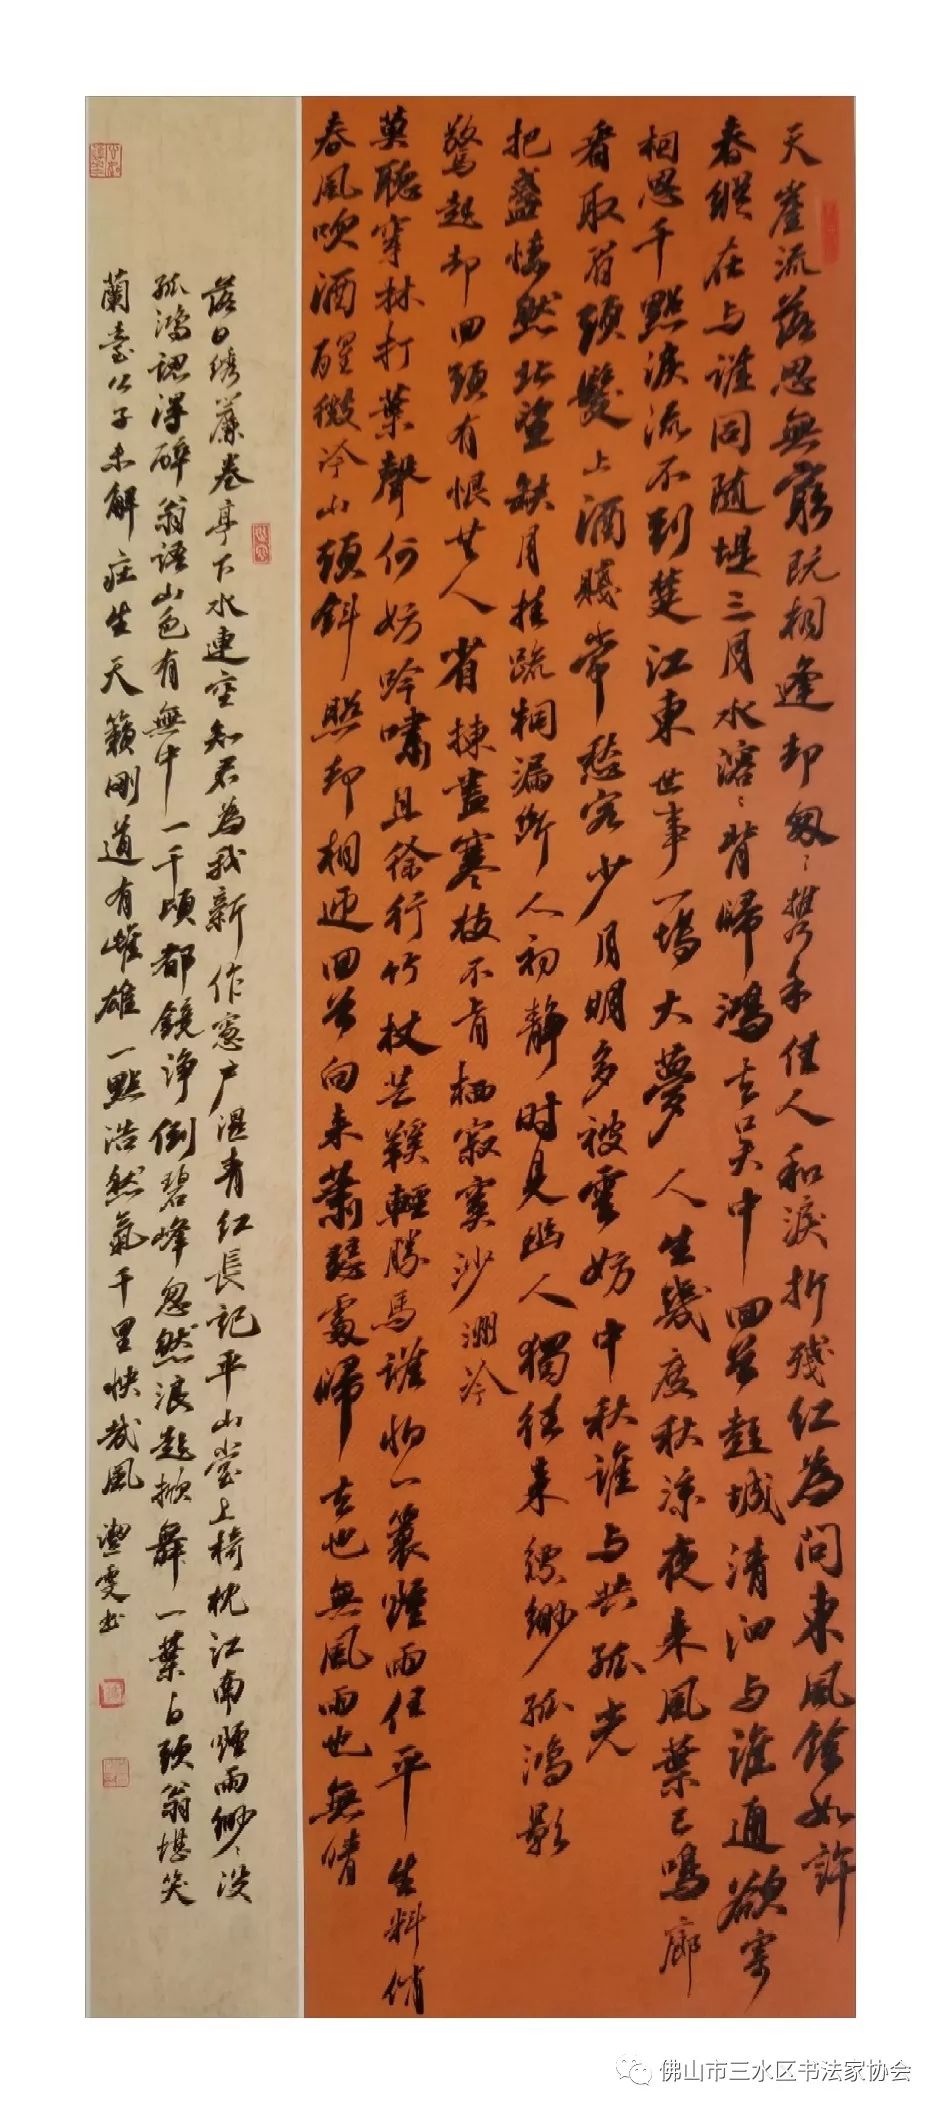 天崖流落思無窮既相逢却匆〻攜手佳人和淚折殘紅為問東風餘如許
春縱在与誰同随堤三月水溶〻背歸鴻去吴中回首彭城清泗与誰通欲寄
相思千點淚流不到楚江東世事一場大夢人生幾度秋涼夜来風葉已鳴廊
看取眉頭鬢上酒賤常愁客少月明多被雲妨中秋誰与共孤光
把盞悽然北望缺月挂疏桐漏断人初静时見幽人獨往来缥缈孤鴻影
驚起却回頭有恨無人省揀盡寒枝不肯栖寂寞沙洲冷
莫聽穿林打葉聲何妨吟嘯且徐行竹杖芒鞵輕勝馬誰怕一蓑煙雨任平生料俏
春風吹酒醒微冷山頭斜照却相迎回首向来蕭瑟處歸去也無風雨也無晴
落日绣簾卷亭下水連空知君為我新作窓户濕青红長記平山堂上欹枕江南煙雨缈〻没
孤鴻認得醉翁語山色有無中一千頃都鏡浄倒碧峰忽然浪起掀舞一葉白頭翁堪笑
蘭臺公子未解莊生天籟剛道有雌雄一點浩然氣千里快哉風 書
佛山市三水区书法家协会